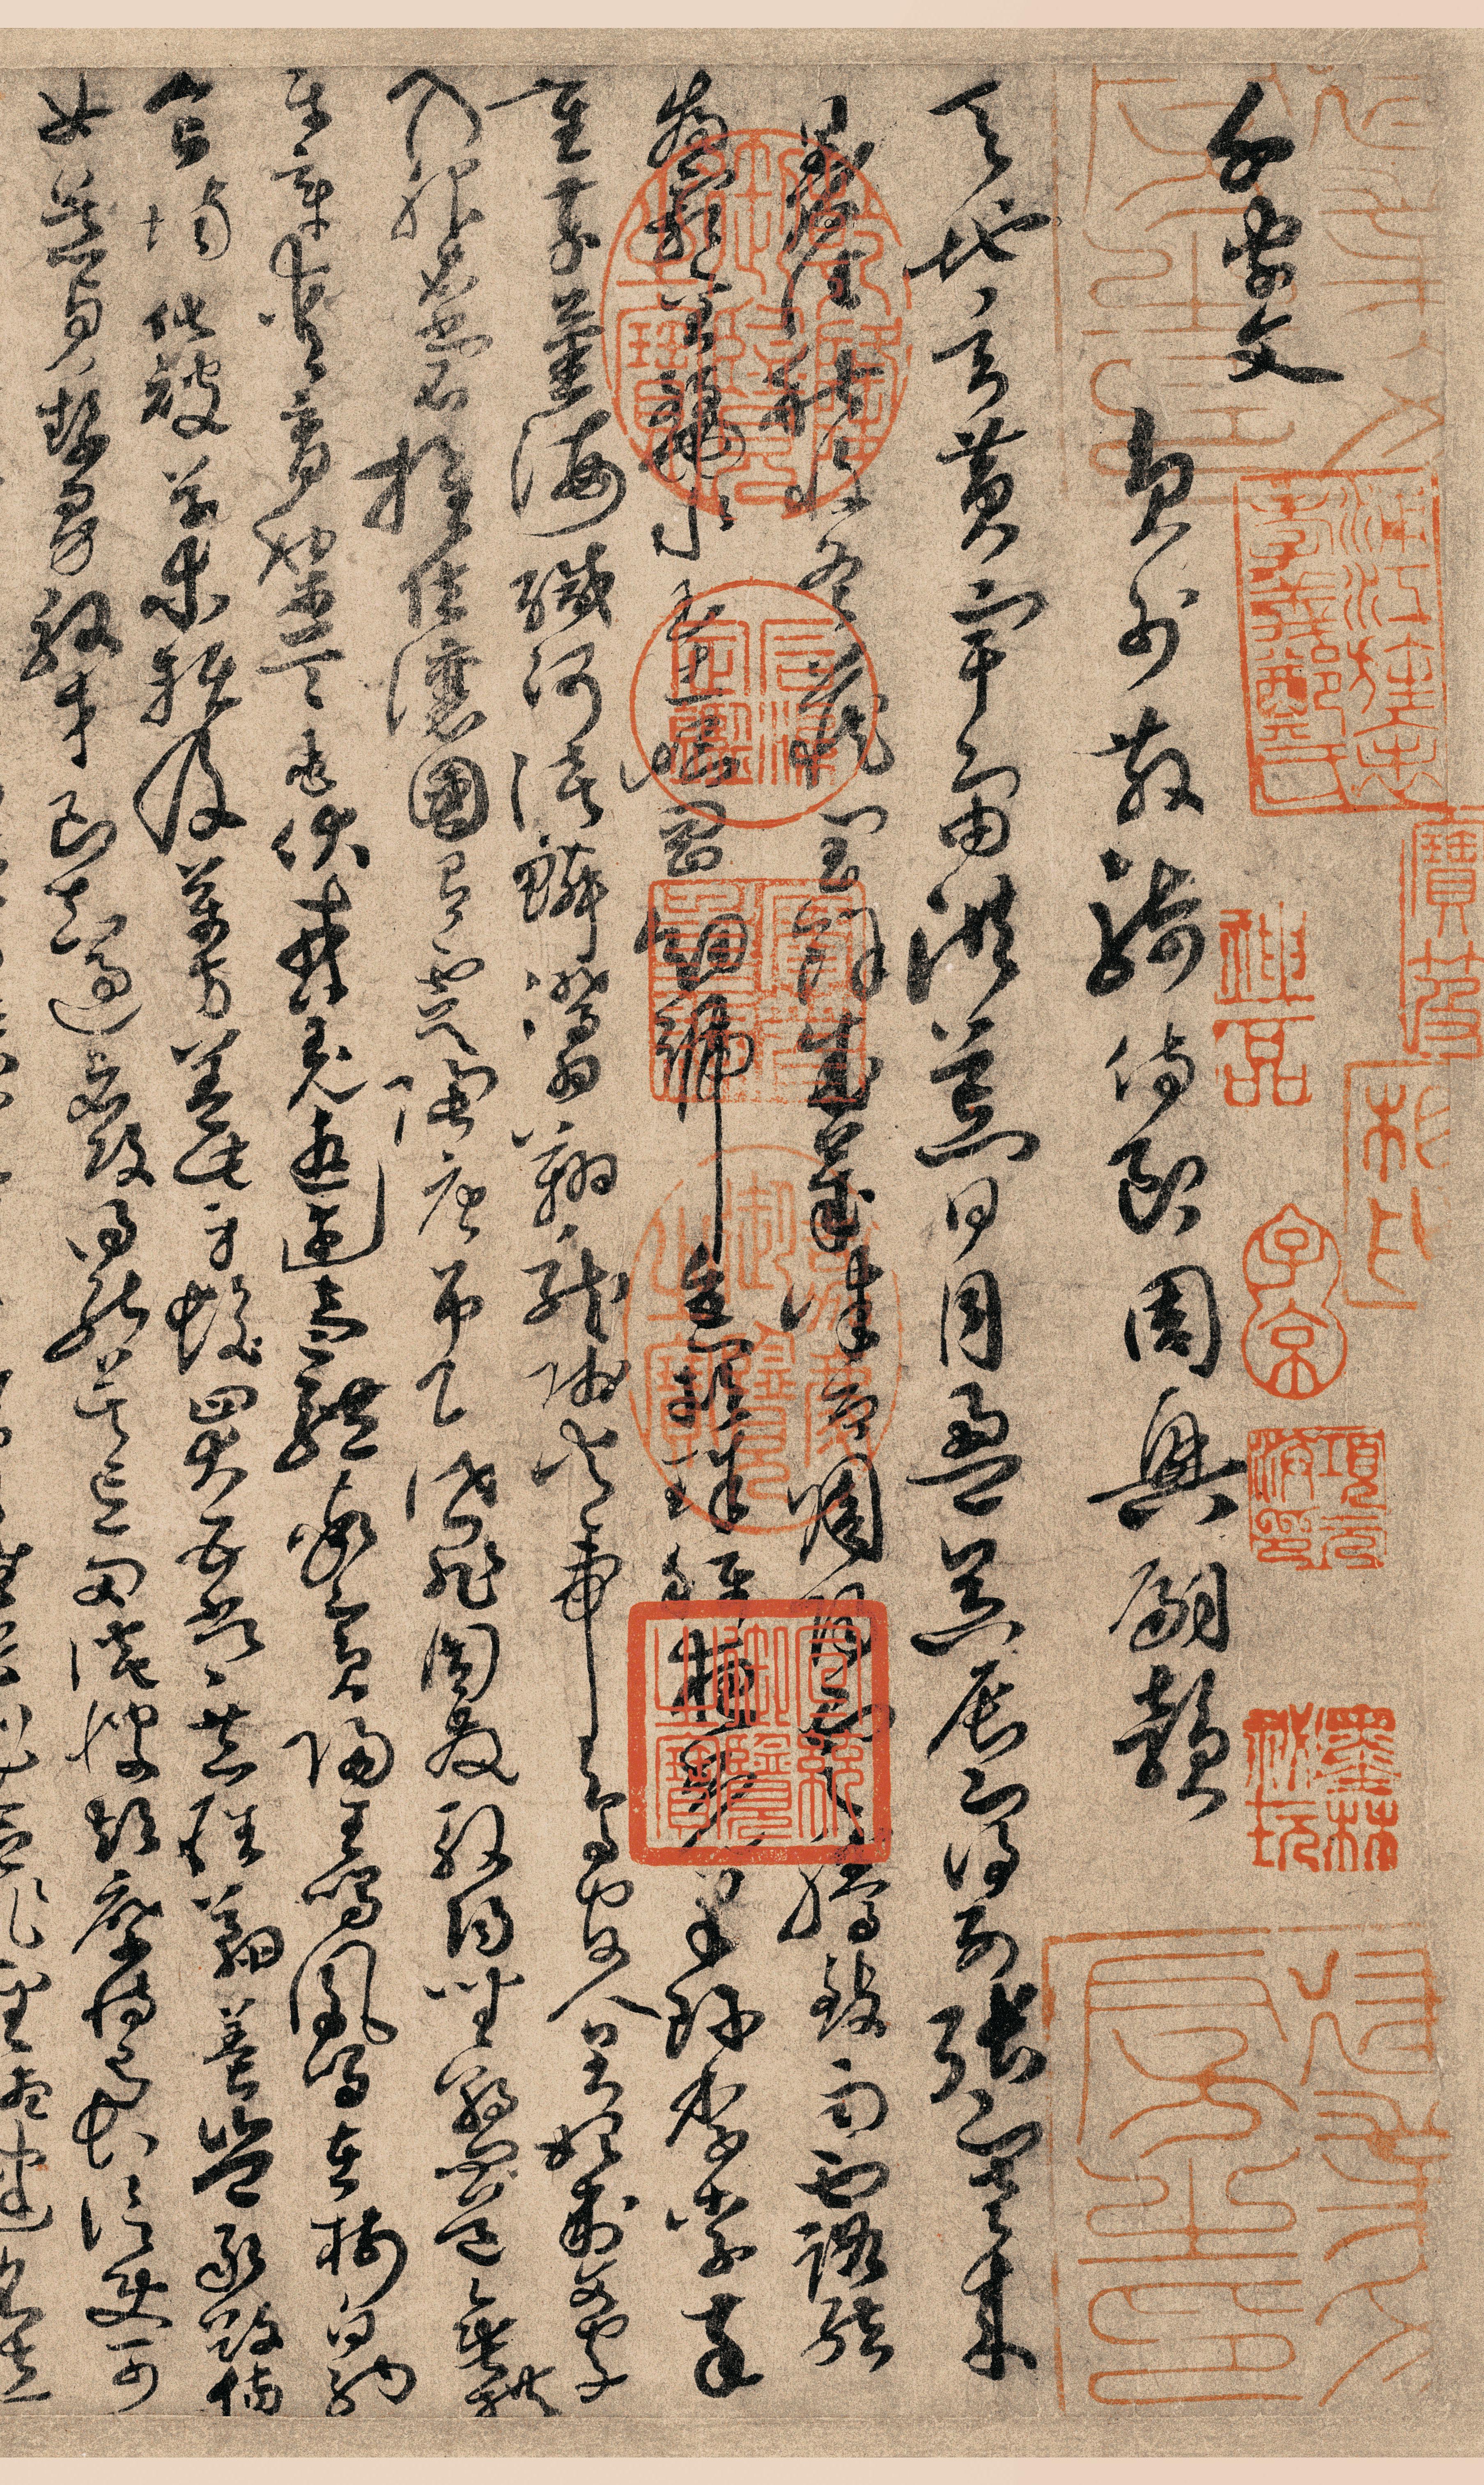 千字文
員外散騎侍郎周興嗣韻
天地玄黃宇宙洪荒日月盈昃辰宿列張寒來
暑往秋收冬藏閏餘成歲律呂調陽雲騰致雨露結
為霜金生麗水玉出崑岡劍號巨闕珠稱夜光果珍李柰菜
重芥薑海鹹河淡鱗潛羽翔龍師火帝鳥官人皇始制文字
乃服衣裳推位讓國有虞陶唐弔民伐罪周發殷湯坐朝問道垂拱
平章愛育黎首臣伏戎羌遐邇壹體率賓歸王鳴鳳在樹白駒
食場化被草木賴及萬方蓋此身髮四大五常恭惟鞠養豈敢毀傷
女慕貞絜男效才良知過必改得能莫忘罔談彼短靡恃己長信使可
神品
子京
項元汴印
墨林祕玩
乾隆御覽之寶
石渠定鑑
寶笈重編
嘉慶御覽之寶
宣統御覽之寶